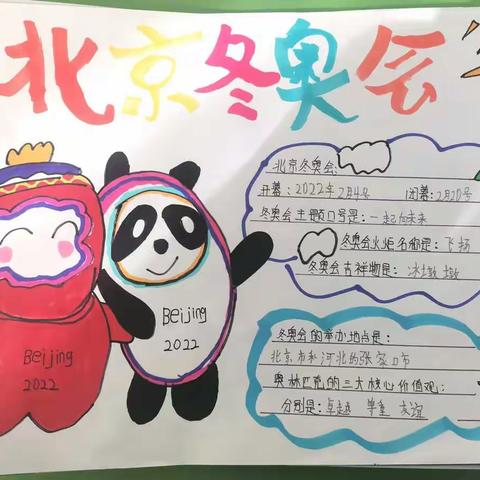 北京冬奥会
北京冬奥会:
开幕:2022年2月4号 闭幕:2月20号
冬奥会主题口号是:一起向未来
冬奥会火炬名称是:飞扬
冬奥会吉祥物是:冰墩墩
Beijing
2022
Beijing
2022
冬奥会的举办地点是:
北京市和河北的张家口市
奥林匹克的三大核心价值观:
分别是:卓越 尊重 友谊